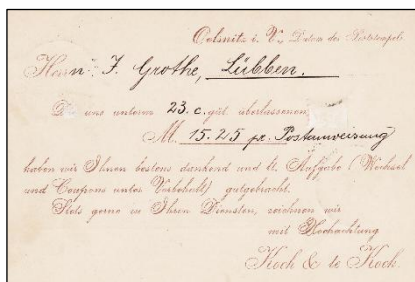 Oelsnitz i. V., Datum des Poststempels
Herrn J. Grothe, Lübben.
Die uns unterm 23. c. gütl. überlassenen
M. 15.25 pr. Postanweisung
haben wir Ihnen bestens dankend und lt. Aufgabe (Wechsel
und Coupons unter Vorbehalt) gutgebracht.
Stets gerne zu Ihren Diensten, zeichnen wir
mit Hochachtung
Koch & te Kock.